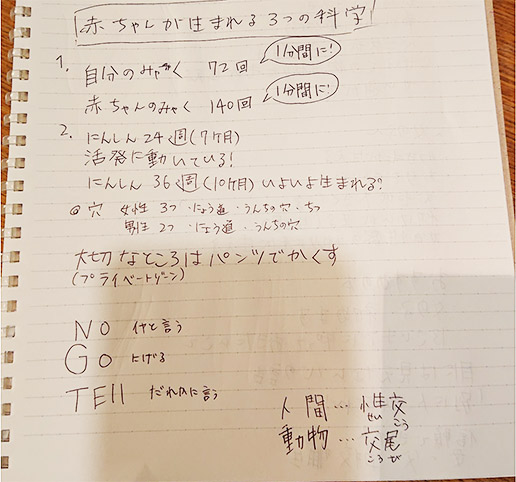 赤ちゃんが生まれる3つの科学
1. 自分のみゃく 72回 1分間に!
赤ちゃんのみゃく 140回 1分間に!
2. にんしん 24週(7ヶ月)
活発に動いている!
にんしん 36週(10ヶ月) いよいよ生まれる?
◎穴 女性 3つ ・にょう道・うんちの穴・ちつ
男性 2つ ・にょう道・うんちの穴
大切なところはパンツでかくす
(プライベートゾーン)
NO イヤと言う
GO にげる
TEll だれかに言う
人間…性交
せい こう
動物…交尾
こう び